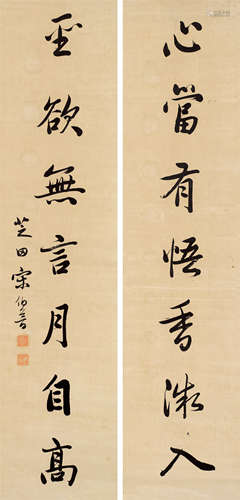 心當有悟香微入
坐欲無言月自高
芝田宋伯魯